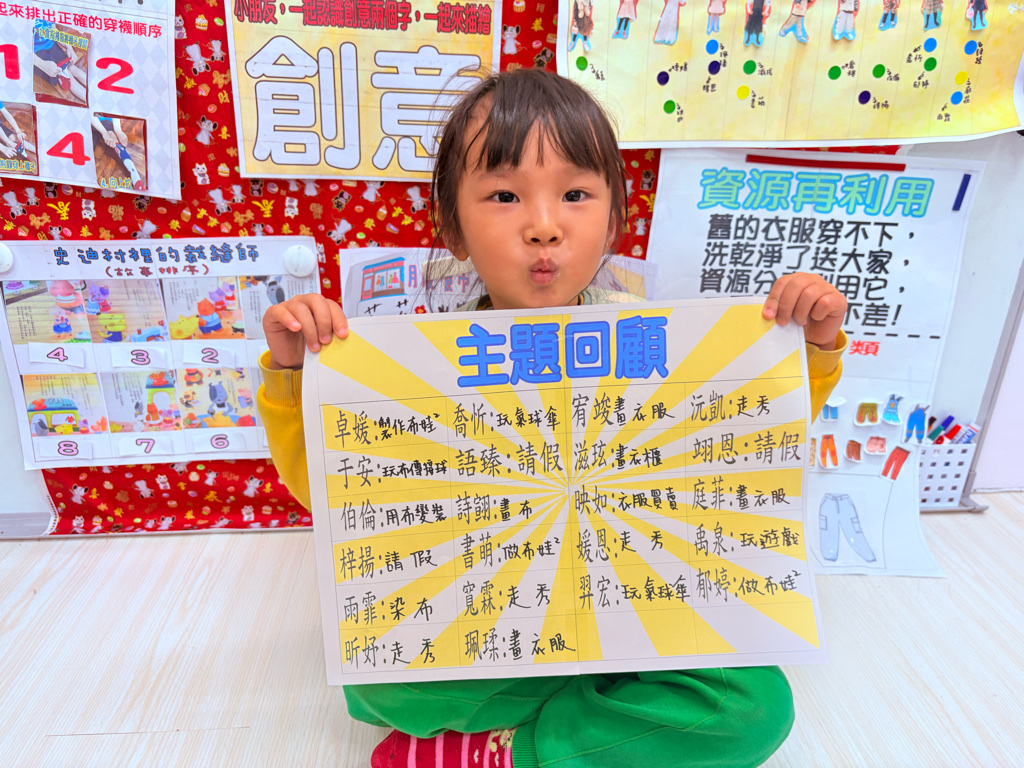 起來排出正確的穿襪順序
1
2
4
小朋友，一起認識創意兩個字，一起來描繪
創意
史迪村裡的裁縫師
(故事排序)
4 3 2
8 7 6
資源再利用
舊的衣服穿不下，
洗乾淨了送大家，
不差!
類
主題回顧
卓媛:製作布娃² 喬忻:玩氣球傘 宥竣:畫衣服 沅凱:走秀
于安:玩布傳接球 語臻:請假 滋玹:畫衣櫃 翊恩:請假
伯倫:用布變裝 詩翮:畫布 映如:衣服買賣 庭菲:畫衣服
梓揚:請假 書萌:做布娃² 媛恩:走秀 禹泉:玩遊戲
雨霏:染布 寬霖:走秀 羿宏:玩氣球傘 郁婷:做布娃²
昕妤:走秀 珮瑈:畫衣服